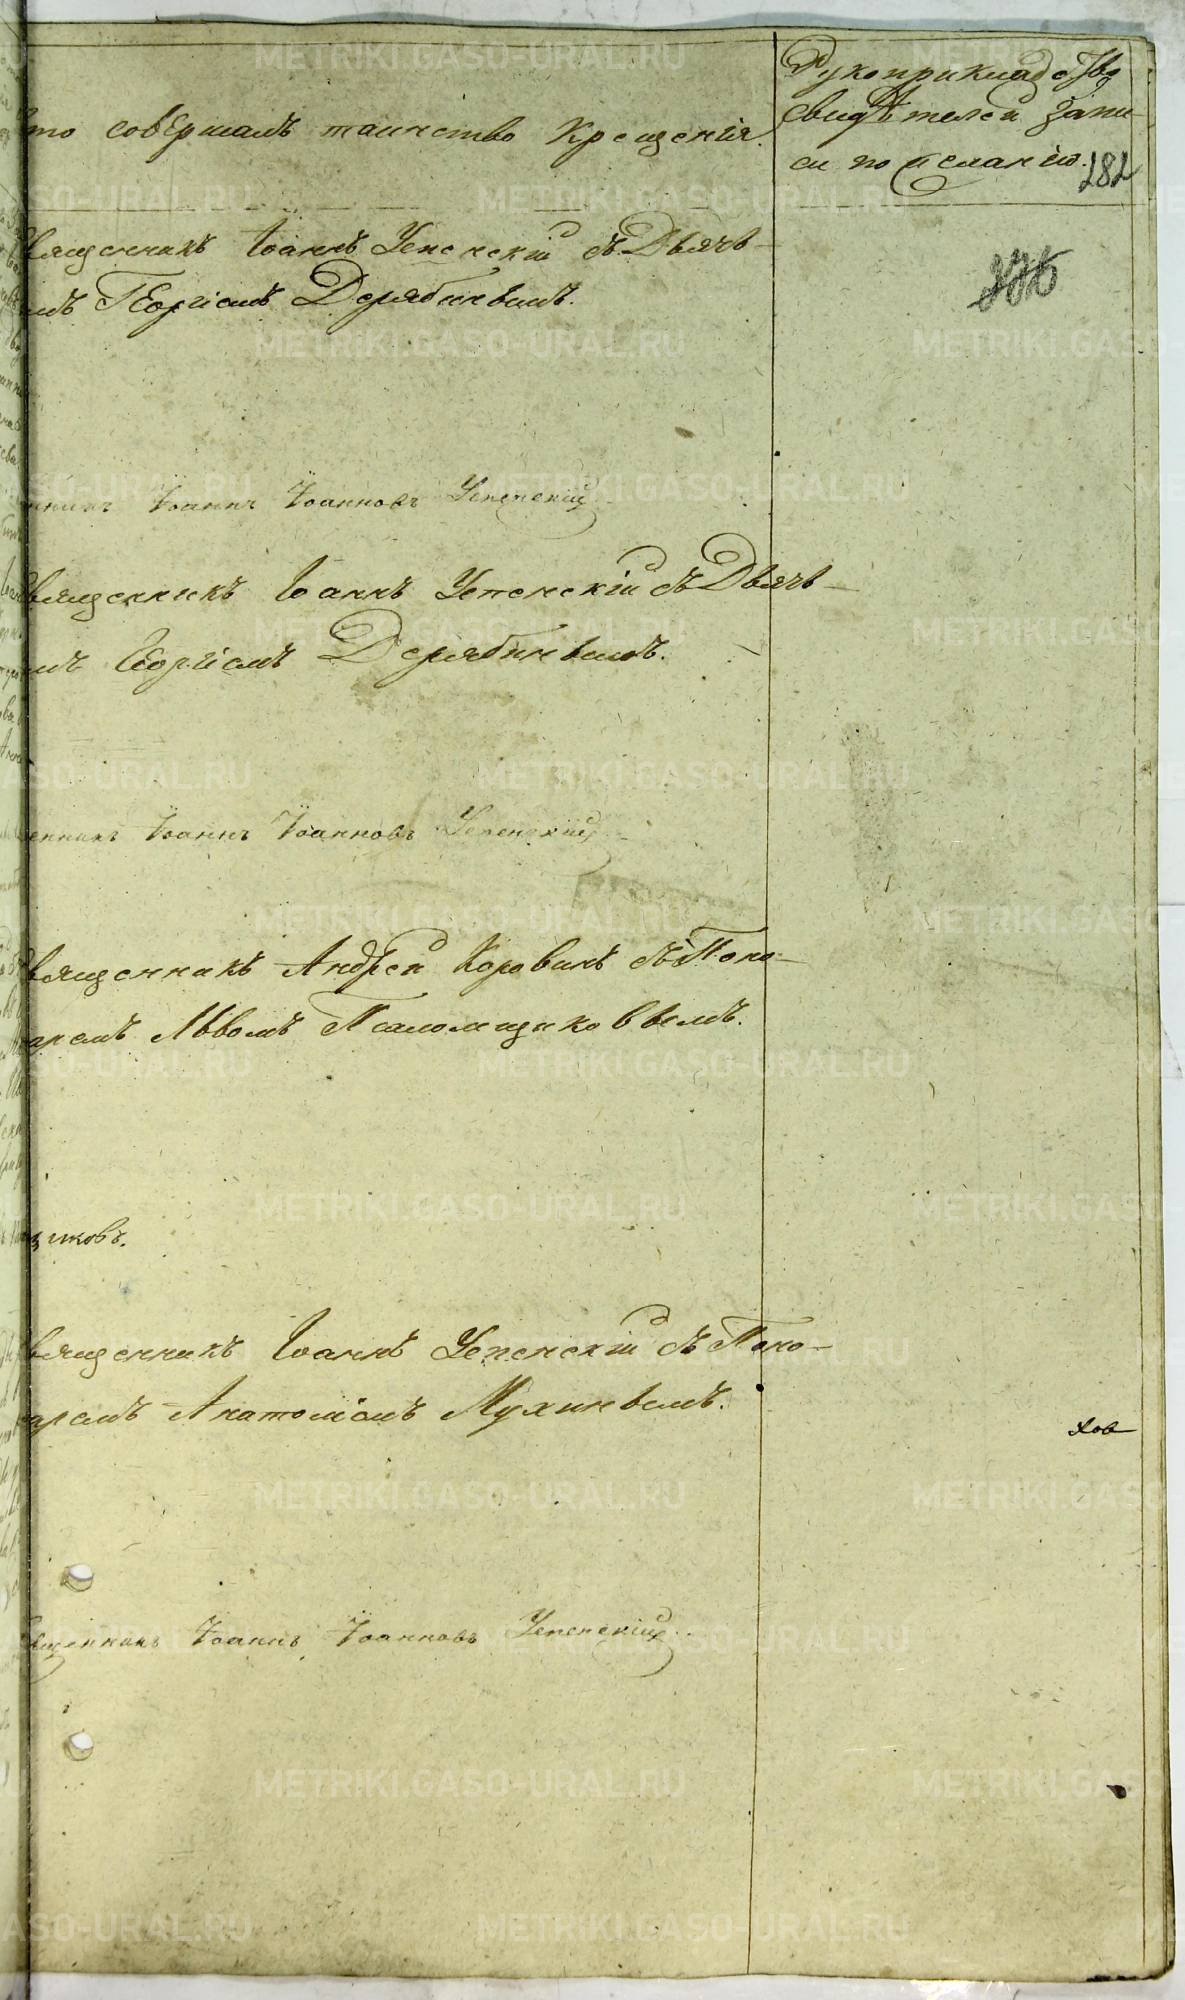 то совершалъ таинство крещенія.
Рукоприкладство
свидѣтелей запи-
си по желанію.
282
вященникъ Іоаннъ Успенскій съ Дьяч-
мъ Георгіемъ Дерябинымъ.
нникъ Іоаннъ Іоанновъ Успенскій
вященникъ Іоаннъ Успенскій съ Дьяч-
мъ Георгіемъ Дерябинымъ.
енникъ Іоаннъ Іоанновъ Успенскій
вященникъ Андрей Коровинъ съ Поно-
аремъ Львомъ Псаломщиковымъ.
щиковъ.
вященникъ Іоаннъ Успенскій съ Поно-
аремъ Анатоліемъ Мухинымъ.
хов
вященникъ Іоаннъ Іоанновъ Успенскій
METRIKI.GASO-URAL.RU